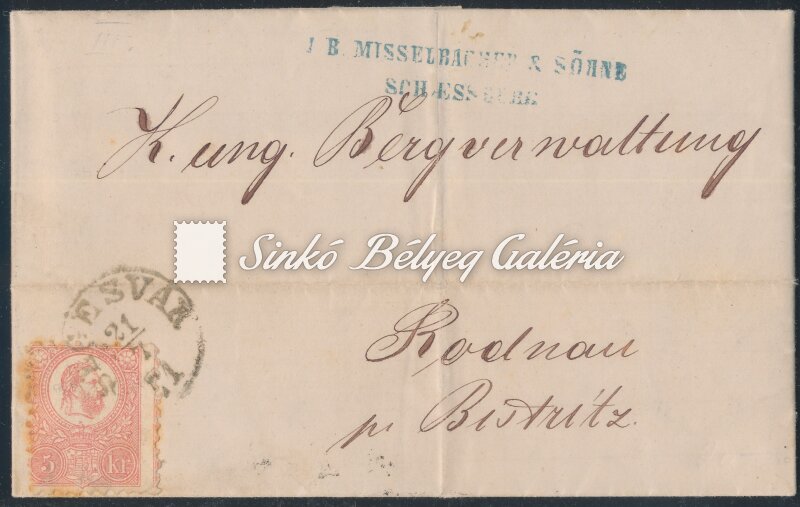 J B. MISSELBACHER & SÖHNE
SCHÆSSBURG
K. ung. Bergverwaltung
Sinkó Bélyeg Galéria
SEGESVÁR
21/7
71
Rodnau
p. Bistritz.
5 kr